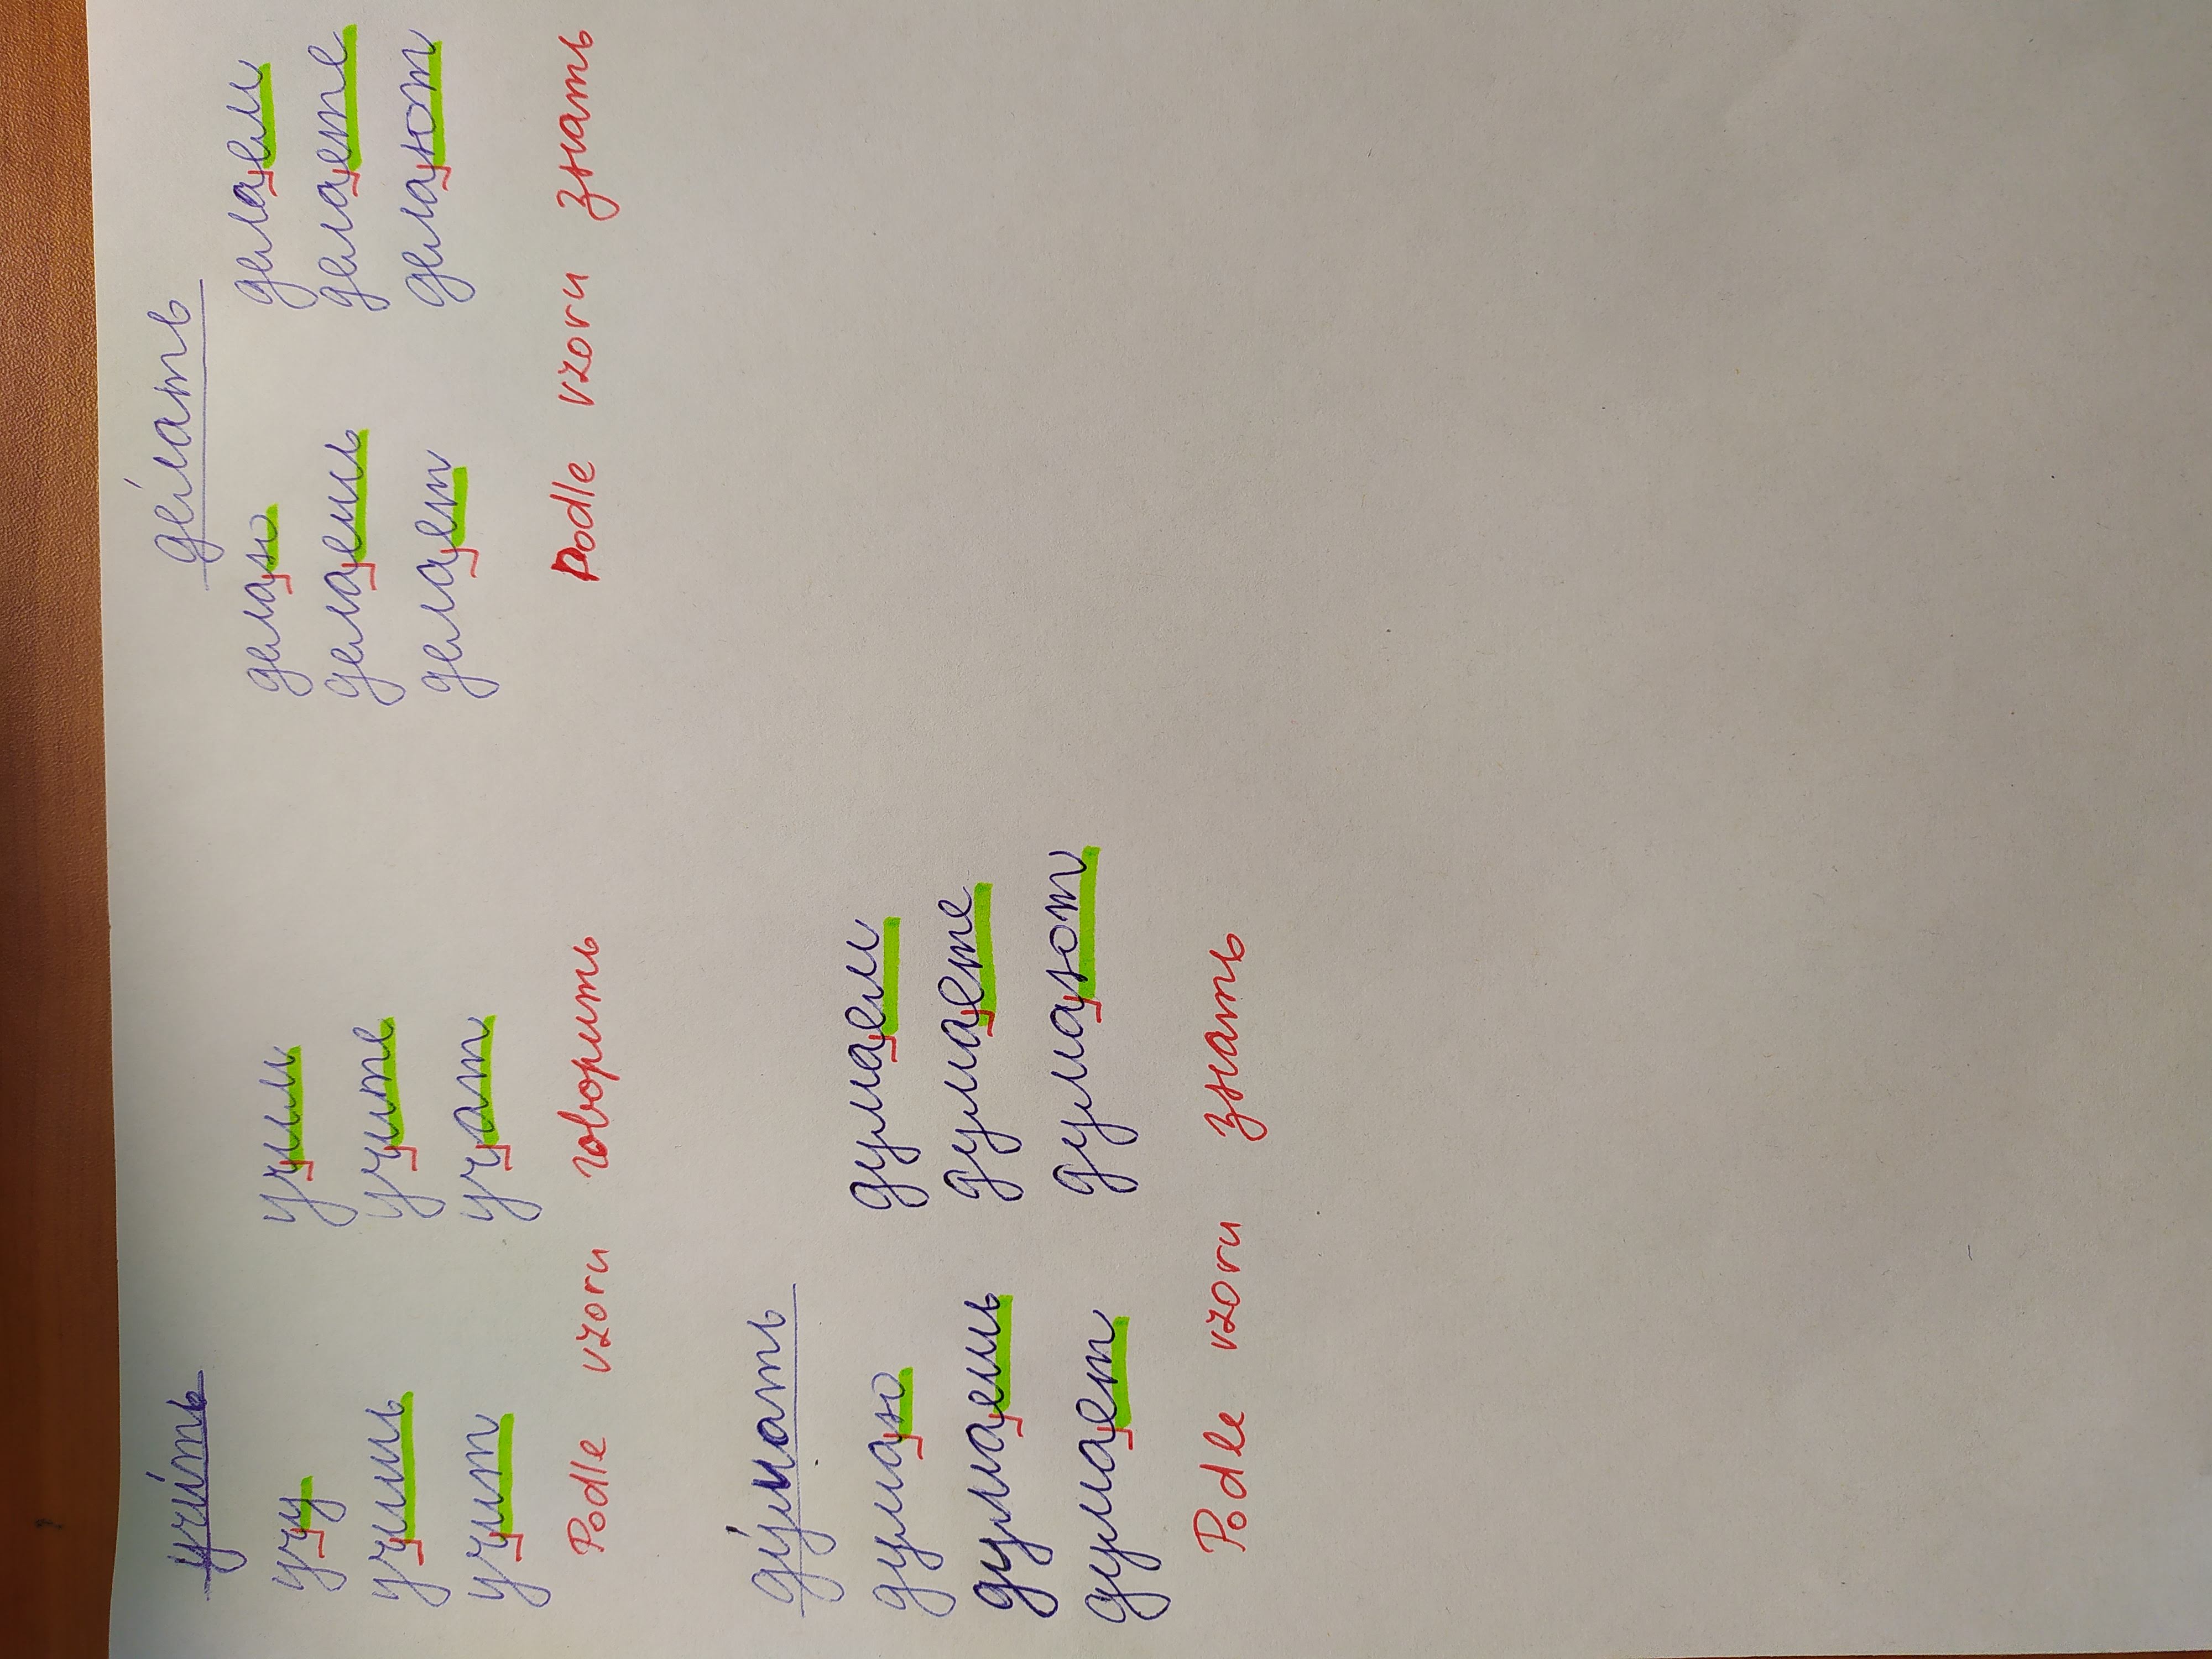 учи́ть
учу учим
учишь учите
учит учат
Podle vzoru говорить
де́лать
делаю делаем
делаешь делаете
делает делают
Podle vzoru знать
ду́мать
думаю думаем
думаешь думаете
думает думают
Podle vzoru знать